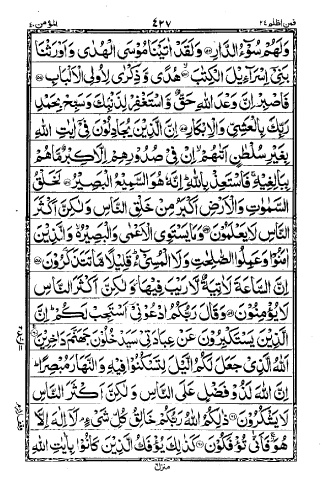 فمن اظلم ٢٤ ٤٢٧ المؤمن ٤٠
وَلَهُمْ سُوْٓءُ الدَّارِ ۝ وَلَقَدْ اٰتَيْنَا مُوْسَى الْهُدٰى وَاَوْرَثْنَا
بَنِيْٓ اِسْرَآءِيْلَ الْكِتٰبَ ۝ هُدًى وَّذِكْرٰى لِاُولِى الْاَلْبَابِ ۝
فَاصْبِرْ اِنَّ وَعْدَ اللّٰهِ حَقٌّ وَّاسْتَغْفِرْ لِذَنْۢبِكَ وَسَبِّحْ بِحَمْدِ
رَبِّكَ بِالْعَشِيِّ وَالْاِبْكَارِ ۝ اِنَّ الَّذِيْنَ يُجَادِلُوْنَ فِيْٓ اٰيٰتِ اللّٰهِ
بِغَيْرِ سُلْطٰنٍ اَتٰىهُمْ ۙ اِنْ فِيْ صُدُوْرِهِمْ اِلَّا كِبْرٌ مَّا هُمْ
بِبَالِغِيْهِ ۚ فَاسْتَعِذْ بِاللّٰهِ ۭ اِنَّهٗ هُوَ السَّمِيْعُ الْبَصِيْرُ ۝ لَخَلْقُ
السَّمٰوٰتِ وَالْاَرْضِ اَكْبَرُ مِنْ خَلْقِ النَّاسِ وَلٰكِنَّ اَكْثَرَ
النَّاسِ لَا يَعْلَمُوْنَ ۝ وَمَا يَسْتَوِى الْاَعْمٰى وَالْبَصِيْرُ ۙ وَالَّذِيْنَ
اٰمَنُوْا وَعَمِلُوا الصّٰلِحٰتِ وَلَا الْمُسِيْٓءُ ۭ قَلِيْلًا مَّا تَتَذَكَّرُوْنَ ۝
اِنَّ السَّاعَةَ لَاٰتِيَةٌ لَّا رَيْبَ فِيْهَا وَلٰكِنَّ اَكْثَرَ النَّاسِ
لَا يُؤْمِنُوْنَ ۝ وَقَالَ رَبُّكُمُ ادْعُوْنِيْٓ اَسْتَجِبْ لَكُمْ ۭ اِنَّ
الَّذِيْنَ يَسْتَكْبِرُوْنَ عَنْ عِبَادَتِيْ سَيَدْخُلُوْنَ جَهَنَّمَ دَاخِرِيْنَ ۝
اَللّٰهُ الَّذِيْ جَعَلَ لَكُمُ الَّيْلَ لِتَسْكُنُوْا فِيْهِ وَالنَّهَارَ مُبْصِرًا ۭ
اِنَّ اللّٰهَ لَذُوْ فَضْلٍ عَلَى النَّاسِ وَلٰكِنَّ اَكْثَرَ النَّاسِ
لَا يَشْكُرُوْنَ ۝ ذٰلِكُمُ اللّٰهُ رَبُّكُمْ خَالِقُ كُلِّ شَيْءٍ ۘ لَآ اِلٰهَ اِلَّا
هُوَ ۡ فَاَنّٰى تُؤْفَكُوْنَ ۝ كَذٰلِكَ يُؤْفَكُ الَّذِيْنَ كَانُوْا بِاٰيٰتِ اللّٰهِ